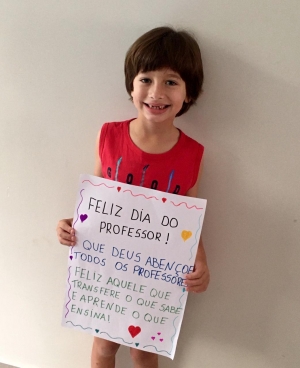 FELIZ DÍA DO
PROFESSOR!
QUE DEUS ABENÇOE
TODOS OS PROFESSORES
FELIZ AQUELE QUE
TRANSFERE O QUE SABE
E APRENDE O QUE
ENSINA!